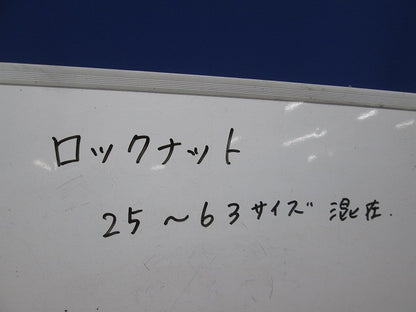 ロックナット
25～63サイズ 混在.